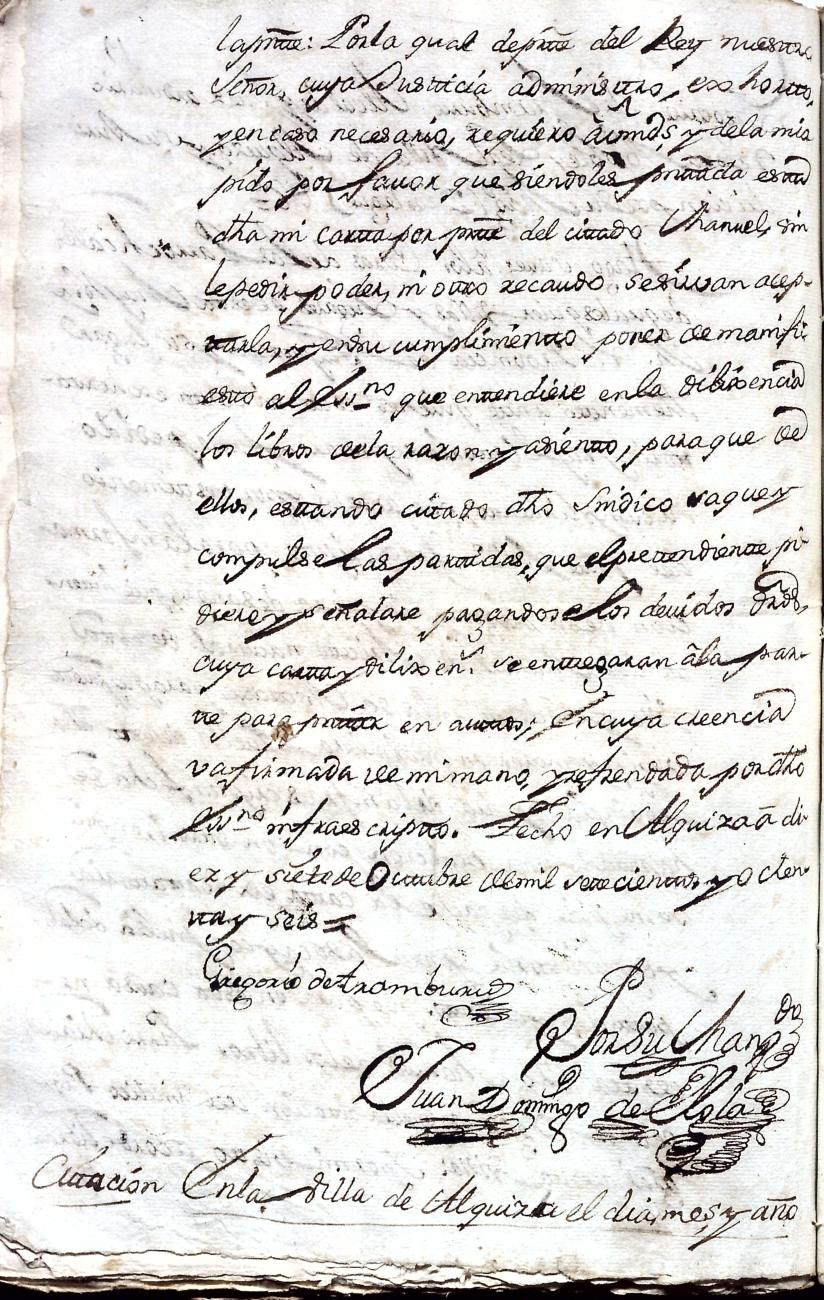 la prẽte: Por la qual de prẽte del Rey nuestro
Señor, cuya Justicia administro, exhorto,
y en caso necesario, requiero à vmds, y de la mia
pido por favor que siendoles prñtada esta
dha mi carta por prẽte del citado Manuel, sin
le pedir poder, ni otro recaudo se sirvan acep-
tarla, y en su cumplimiento poner de manifi-
esto al Essno que entendiere en la dilixencia
los libros de la razon y asiento, para que de
ellos, estando citado dho Sindico saque y
compulse las partidas, que el pretendiente pi-
diere y señalare pagandose los devidos drõs,
cuya carta y dilixens se entregaran â la par-
te para prñtar en autos; En cuya creencia
va firmada de mi mano, y refrendada por dho
Essno infraescripto. Fecho en Alquiza â di-
ez y siete de Octubre de mil setecientos y ochen-
ta y seis =
Gregorio de Iramburu
Por su Mando
Juan Domingo de Elola
Citación En la Villa de Alquiza el dia, mes, y año